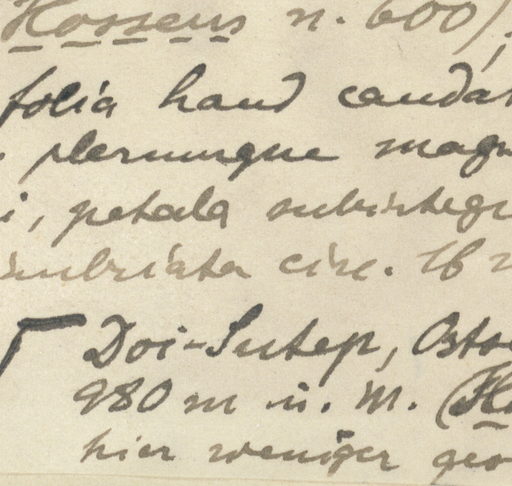 Hosseus n. 600)
folia haud caudat
plerumque mag
i, petala subintegr
imbriata circ. 16
Doi-Sutep, Osts
980 m ü. M. (Ho
hier weniger